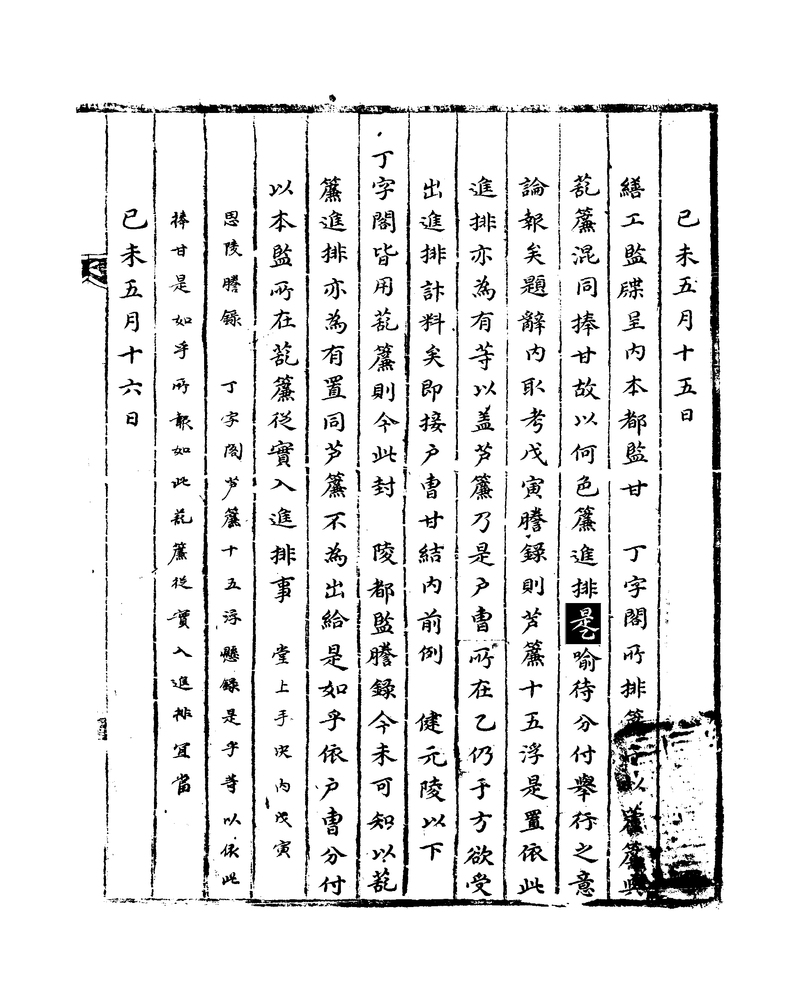 己未五月十五日
繕工監牒呈內本都監甘　丁字閣所排簾　以蘆簾與
葒簾混同捧甘故以何色簾進排是喩待分付擧行之意
論報矣題辭內取考戊寅謄錄則芦簾十五浮是置依此
進排亦為有等以盖芦簾乃是戶曺所在乙仍于方欲受
出進排計料矣即接戶曺甘結內前例　健元陵以下
丁字閣皆用葒簾則今此封　陵都監謄錄今未可知以葒
簾進排亦為有置同芦簾不為出給是如乎依戶曺分付
以本監所在葒簾從實入進排事　堂上手决內戊寅
思陵謄錄　丁字閣芦簾十五浮懸錄是乎等以依此
捧甘是如乎所報如此葒簾從實入進排宜當
己未五月十六日